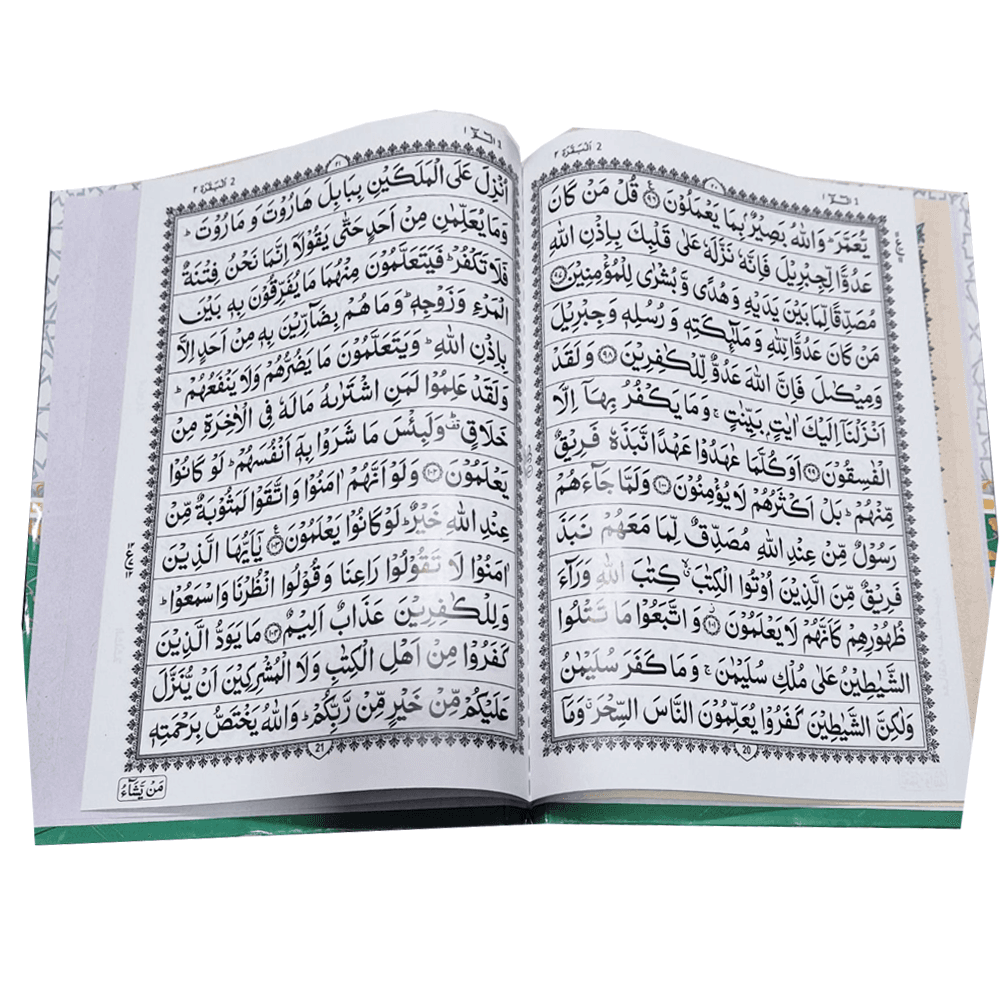 2 اَلْبَقَرَة ٢
الٓمّٓ 1 ١
٢٠
يُّعَمَّرَ ؕ وَاللّٰهُ بَصِيْرٌۢ بِمَا يَعْمَلُوْنَ ﴿۹۶﴾ قُلْ مَنْ كَانَ
عَدُوًّا لِّجِبْرِيْلَ فَاِنَّهٗ نَزَّلَهٗ عَلٰى قَلْبِكَ بِاِذْنِ اللّٰهِ
مُصَدِّقًا لِّمَا بَيْنَ يَدَيْهِ وَ هُدًى وَّ بُشْرٰى لِلْمُؤْمِنِيْنَ ﴿۹۷﴾
مَنْ كَانَ عَدُوًّا لِّلّٰهِ وَ مَلٰٓئِكَتِهٖ وَ رُسُلِهٖ وَ جِبْرِيْلَ
وَمِيْكٰىلَ فَاِنَّ اللّٰهَ عَدُوٌّ لِّلْكٰفِرِيْنَ ﴿۹۸﴾ وَ لَقَدْ
اَنْزَلْنَاۤ اِلَيْكَ اٰيٰتٍۭ بَيِّنٰتٍ ۚ وَ مَا يَكْفُرُ بِهَاۤ اِلَّا
الْفٰسِقُوْنَ ﴿۹۹﴾ اَوَكُلَّمَا عٰهَدُوْا عَهْدًا نَّبَذَهٗ فَرِيْقٌ
مِّنْهُمْ ؕ بَلْ اَكْثَرُهُمْ لَا يُؤْمِنُوْنَ ﴿۱۰۰﴾ وَلَمَّا جَآءَهُمْ
رَسُوْلٌ مِّنْ عِنْدِ اللّٰهِ مُصَدِّقٌ لِّمَا مَعَهُمْ نَبَذَ
فَرِيْقٌ مِّنَ الَّذِيْنَ اُوْتُوا الْكِتٰبَ ۙ كِتٰبَ اللّٰهِ وَرَآءَ
ظُهُوْرِهِمْ كَاَنَّهُمْ لَا يَعْلَمُوْنَ ﴿۱۰۱﴾ وَ اتَّبَعُوْا مَا تَتْلُوا
الشَّيٰطِيْنُ عَلٰى مُلْكِ سُلَيْمٰنَ ۚ وَ مَا كَفَرَ سُلَيْمٰنُ
وَلٰكِنَّ الشَّيٰطِيْنَ كَفَرُوْا يُعَلِّمُوْنَ النَّاسَ السِّحْرَ ۗ وَمَاۤ
20
الٓمّٓ 1 ١
2 اَلْبَقَرَة ٢
٢١
اُنْزِلَ عَلَى الْمَلَكَيْنِ بِبَابِلَ هَارُوْتَ وَ مَارُوْتَ ؕ
وَمَا يُعَلِّمٰنِ مِنْ اَحَدٍ حَتّٰى يَقُوْلَاۤ اِنَّمَا نَحْنُ فِتْنَةٌ
فَلَا تَكْفُرْ ؕ فَيَتَعَلَّمُوْنَ مِنْهُمَا مَا يُفَرِّقُوْنَ بِهٖ بَيْنَ
الْمَرْءِ وَ زَوْجِهٖ ؕ وَمَا هُمْ بِضَآرِّيْنَ بِهٖ مِنْ اَحَدٍ اِلَّا
بِاِذْنِ اللّٰهِ ؕ وَيَتَعَلَّمُوْنَ مَا يَضُرُّهُمْ وَلَا يَنْفَعُهُمْ ؕ
وَلَقَدْ عَلِمُوْا لَمَنِ اشْتَرٰىهُ مَا لَهٗ فِى الْاٰخِرَةِ مِنْ
خَلَاقٍ ۟ؕ وَلَبِئْسَ مَا شَرَوْا بِهٖۤ اَنْفُسَهُمْ ؕ لَوْ كَانُوْا
يَعْلَمُوْنَ ﴿۱۰۲﴾ وَلَوْ اَنَّهُمْ اٰمَنُوْا وَ اتَّقَوْا لَمَثُوْبَةٌ مِّنْ
عِنْدِ اللّٰهِ خَيْرٌ ؕ لَوْ كَانُوْا يَعْلَمُوْنَ ﴿۱۰۳﴾ يٰۤاَيُّهَا الَّذِيْنَ
اٰمَنُوْا لَا تَقُوْلُوْا رَاعِنَا وَ قُوْلُوا انْظُرْنَا وَ اسْمَعُوْا ؕ
وَ لِلْكٰفِرِيْنَ عَذَابٌ اَلِيْمٌ ﴿۱۰۴﴾ مَا يَوَدُّ الَّذِيْنَ
كَفَرُوْا مِنْ اَهْلِ الْكِتٰبِ وَلَا الْمُشْرِكِيْنَ اَنْ يُّنَزَّلَ
عَلَيْكُمْ مِّنْ خَيْرٍ مِّنْ رَّبِّكُمْ ؕ وَاللّٰهُ يَخْتَصُّ بِرَحْمَتِهٖ
21
مَنْ يَّشَآءُ